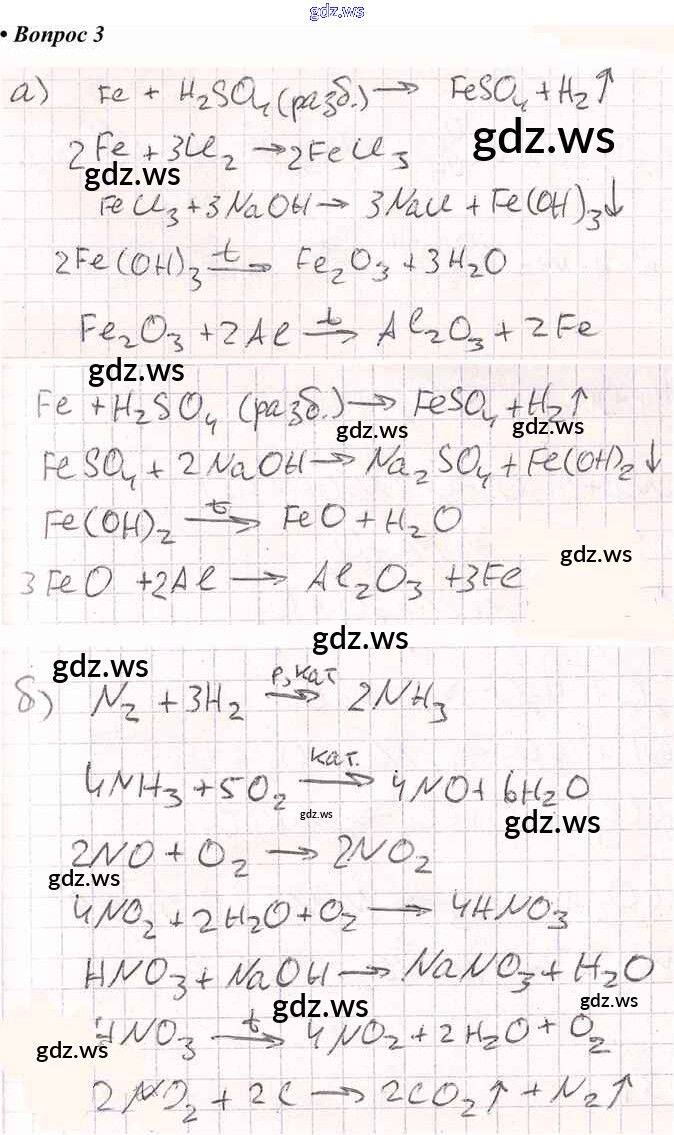 gdz.ws
• Вопрос 3
а) Fe + H₂SO₄ (разб.) → FeSO₄ + H₂↑
gdz.ws
2Fe + 3Cl₂ → 2FeCl₃
gdz.ws
FeCl₃ + 3NaOH → 3NaCl + Fe(OH)₃↓
2Fe(OH)₃ t→ Fe₂O₃ + 3H₂O
Fe₂O₃ + 2Al t→ Al₂O₃ + 2Fe
gdz.ws
Fe + H₂SO₄ (разб.) → FeSO₄ + H₂↑
gdz.ws gdz.ws
FeSO₄ + 2NaOH → Na₂SO₄ + Fe(OH)₂↓
Fe(OH)₂ t→ FeO + H₂O
gdz.ws
3FeO + 2Al → Al₂O₃ + 3Fe
gdz.ws
gdz.ws
б) N₂ + 3H₂ p, кат→ 2NH₃
4NH₃ + 5O₂ кат.→ 4NO + 6H₂O
gdz.ws
gdz.ws
2NO + O₂ → 2NO₂
gdz.ws
4NO₂ + 2H₂O + O₂ → 4HNO₃
HNO₃ + NaOH → NaNO₃ + H₂O
gdz.ws
gdz.ws
HNO₃ t→ 4NO₂ + 2H₂O + O₂
gdz.ws
2NO₂ + 2C → 2CO₂↑ + N₂↑